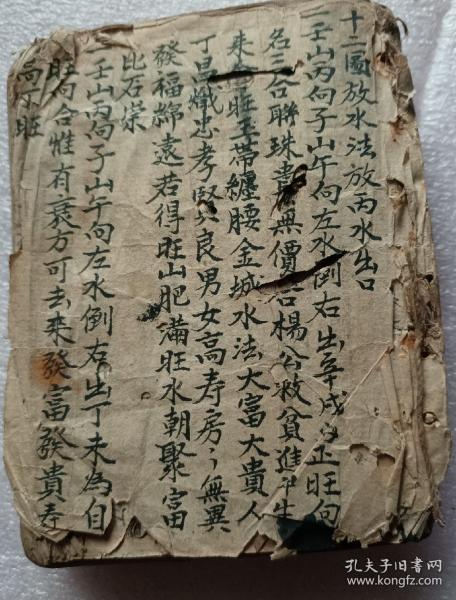 十二圖放水法放丙水出口
壬山丙向子山午向左水倒右出辛戌正旺向
名三合聯珠貴無價楊公救貧進神生
來會旺玉帶纏腰金城水法大富大貴人
丁昌熾忠考賢良男女高寿房〻無異
發福綿遠若得旺山肥满旺水朝聚富
比石崇
壬山丙向子山午向左水倒右出丁未為自
旺向合惟有衰方可去來發富發貴寿
高丁旺
孔夫子旧书网
www.kongfz.com